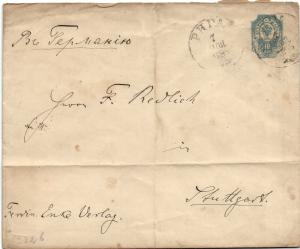 Въ Германію
Herrn F. Redlich
in
Stuttgart.
Enke Verlag.